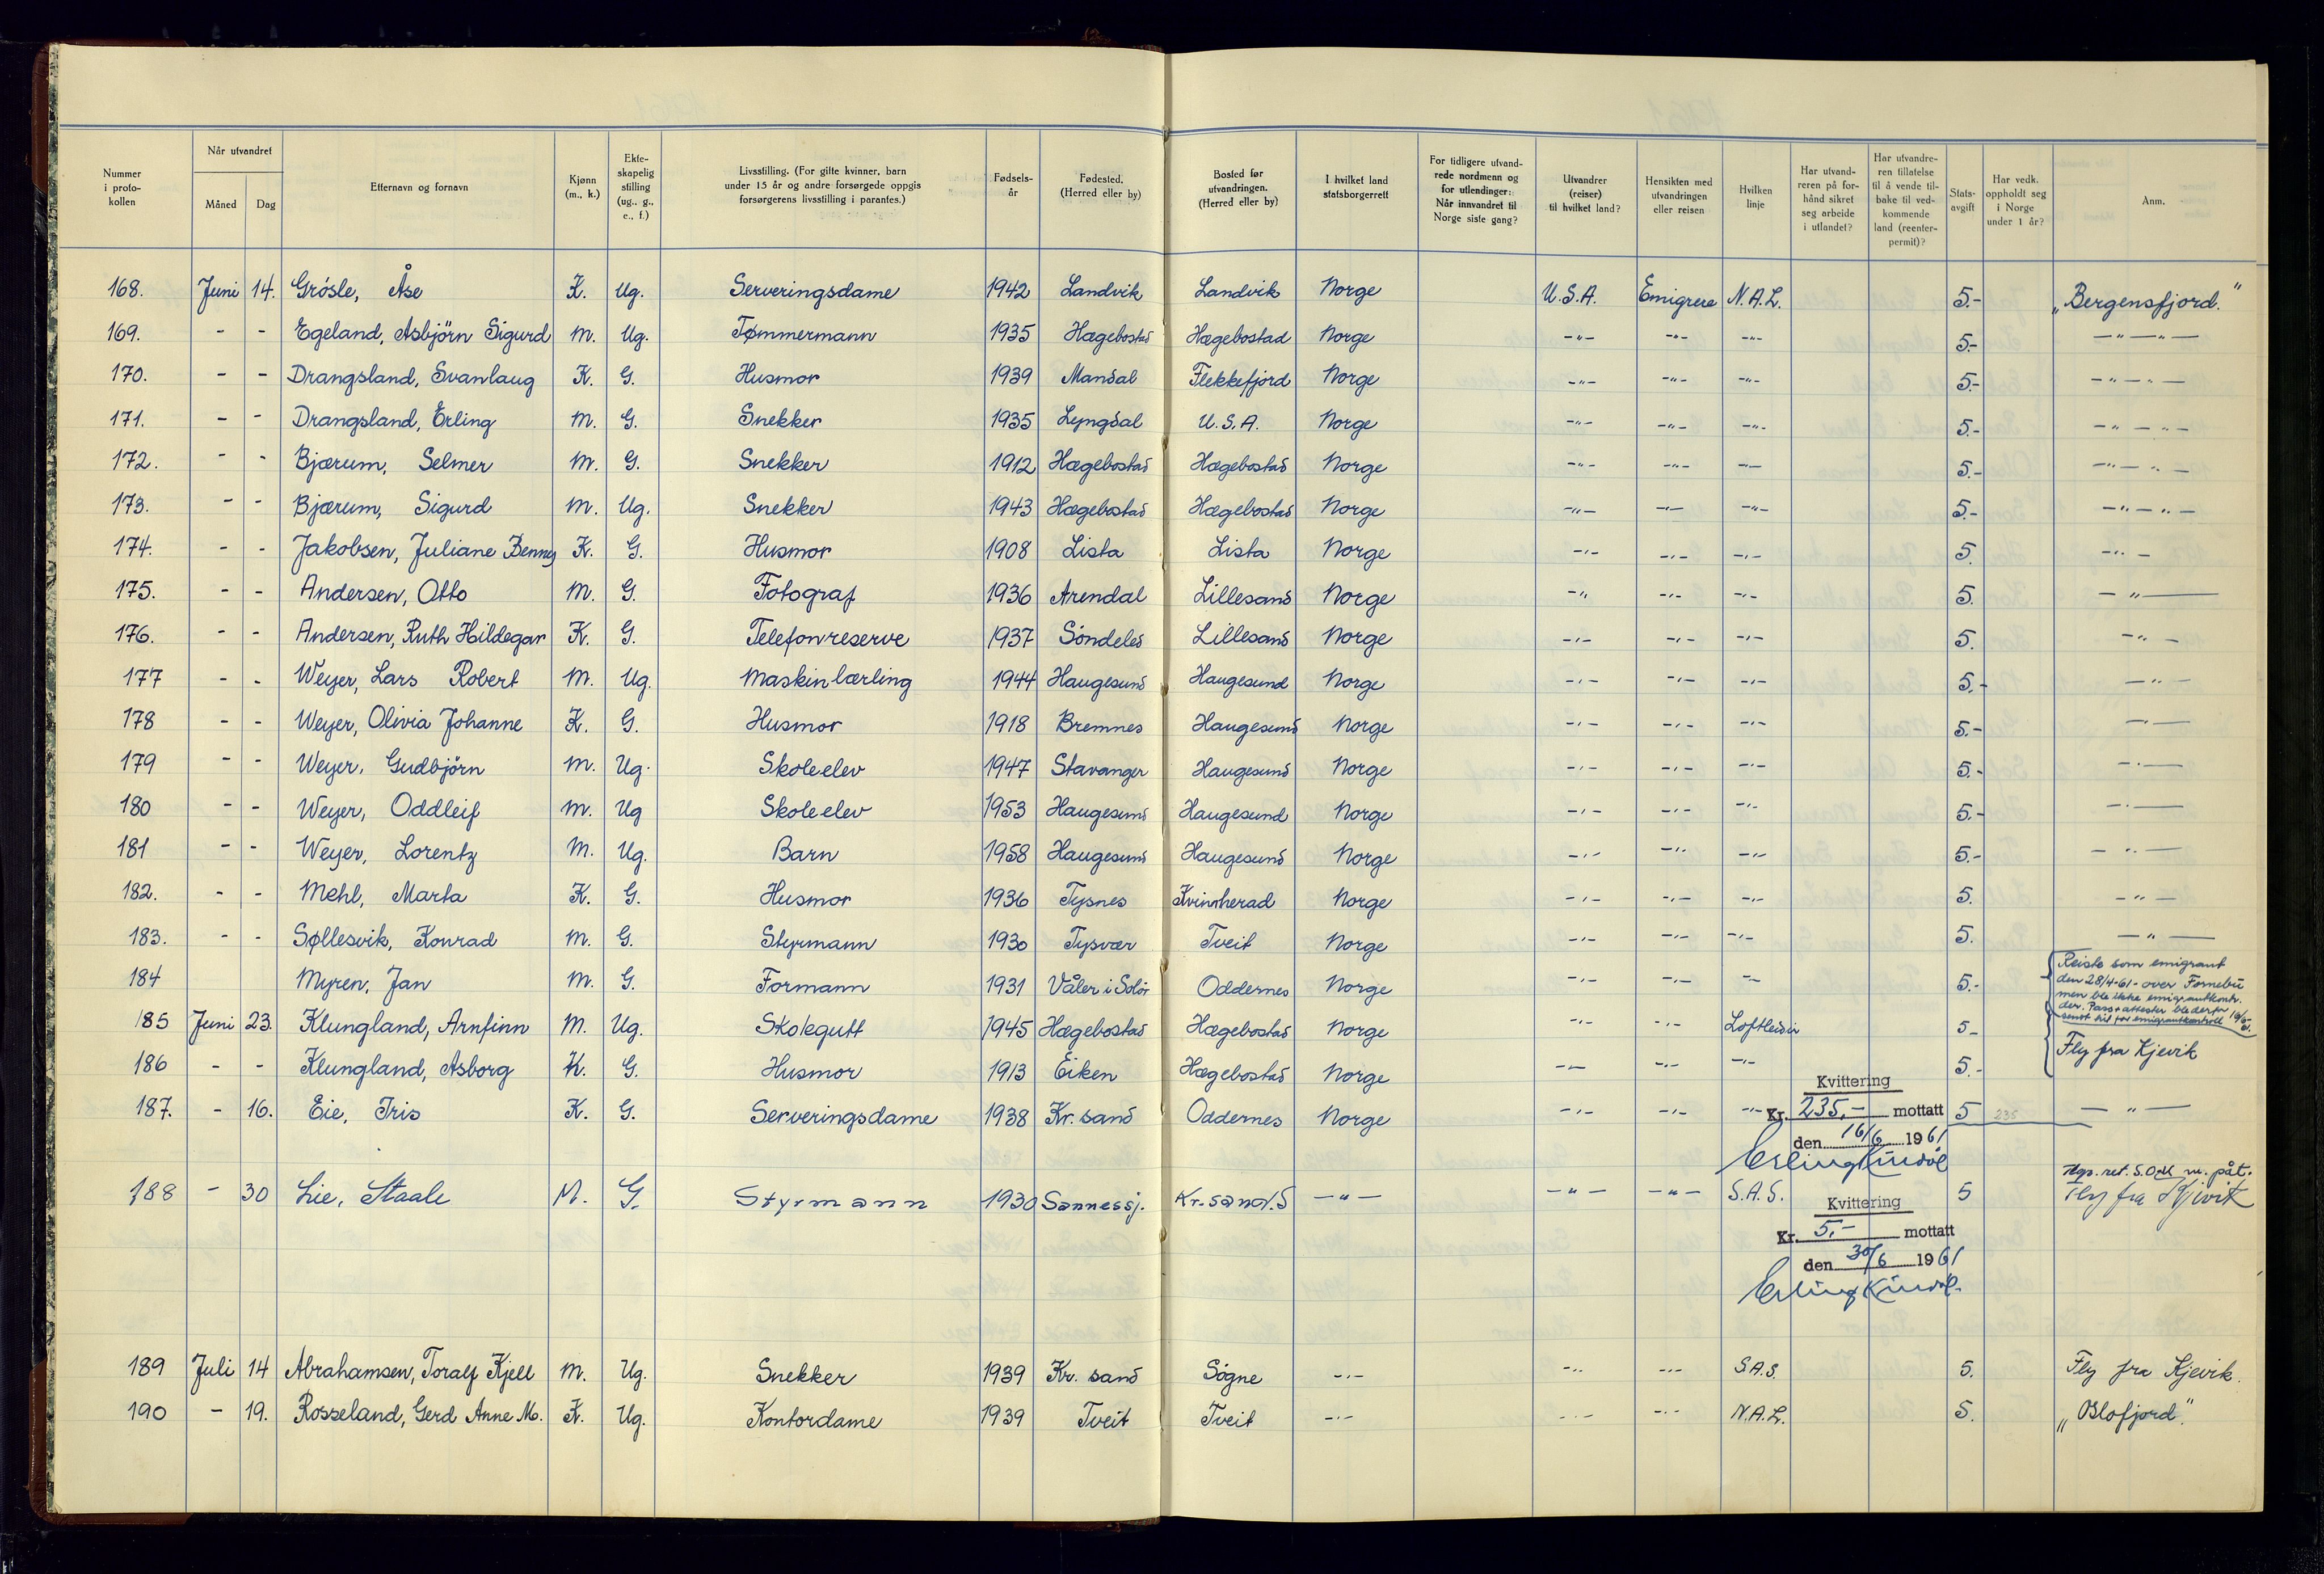 Nummer i proto-kollen | Når utvandret Måned Dag | Etternavn og fornavn | Kjønn (m., k.) | Ekte-skapelig stilling (ug., g., e., f.) | Livsstilling. (For gifte kvinner, barn under 15 år og andre forsørgede oppgis forsørgerens livsstilling i parantes.) | Fødsels-år | Fødested. (Herred eller by) | Bosted før utvandringen. (Herred eller by) | I hvilket land statsborgerrett | For tidligere utvand-rede nordmenn og for utlendinger: Når innvandret til Norge siste gang? | Utvandrer (reiser) til hvilket land? | Hensikten med utvandringen eller reisen | Hvilken linje | Har utvand-reren på for-hånd sikret seg arbeide i utlandet? | Har utvandre-ren tillatelse til å vende til-bake til ved-kommende land (reenter-permit)? | Stats-avgift | Har vedk. oppholdt seg i Norge under 1 år? | Anm.
168. Juni 14. Grósle, Åse K. Ug. Serveringsdame 1942 Landvik Landvik Norge U.S.A. Emigrere N.A.L. 5.- „Bergensfjord."
169. - - Egeland, Asbjörn Sigurd M. Ug. Tømmermann 1935 Hægebostad Hægebostad Norge -"- -"- -"- 5.- -"-"-
170. - - Drangsland, Svanlaug K. G. Husmor 1939 Mandal Flekkefjord Norge -"- -"- -"- 5.- -"-"-
171. - - Drangsland, Erling M. G. Snekker 1935 Lyngdal U.S.A. Norge -"- -"- -"- 5.- -"-"-
172. - - Bjærum, Selmer M. G. Snekker 1912 Hægebostad Hægebostad Norge -"- -"- -"- 5.- -"-"-
173. - - Bjærum, Sigurd M. Ug. Snekker 1943 Hægebostad Hægebostad Norge -"- -"- -"- 5.- -"-"-
174. - - Jakobsen, Juliane Benny K. G. Husmor 1908 Lista Lista Norge -"- -"- -"- 5. -"-
175. - - Andersen, Otto M. G. Fotograf 1936 Arendal Lillesand Norge -" -"- -"- 5. -"-
176. - - Andersen, Ruth Hildegar K. G. Telefonreserve 1937 Söndeled Lillesand Norge -"- -"- -"- 5. -"-
177 - - Weyer, Lars Robert M. Ug. Maskinlærling 1944 Haugesund Haugesund Norge -"- -"- -"- 5.- -"-
178 - - Weyer, Olivia Johanne K. G. Husmor 1918 Bremnes Haugesund Norge -"- -"- -"- 5.- -"-
179 - - Weyer, Gudbjörn M. Ug. Skoleelev 1947 Stavanger Haugesund Norge -"- -"- -"- 5.- -"-
180 - - Weyer, Oddleif M. Ug Skoleelev 1953 Haugesund Haugesund Norge -"- -"- -"- 5.- -"-
181 - - Weyer, Lorentz M. Ug. Barn 1958 Haugesund Haugesund Norge -"- -"- -"- 5.- -"-
182. - - Mehl, Marta K. G. Husmor 1936 Tysnes Kvinnherad Norge -"- -"- -"- 5. -"-
183. - - Søllesvik, Konrad M. G. Styrmann 1930 Tysvær Tveit Norge -"- -"- -"- 5. -"-
184 Myren, Jan M. G. Formann 1931 Våler i Solör Oddernes Norge -"- -"- - 5.- Reiste som emigrant
den 28/4-61- over Fornebu
men ble ikke emigrantkontr.
der. Pass+attester ble derfor
sendt hit for emigrantkontroll 16/6-61.
185 Juni 23. Klungland, Arnfinn M. Ug. Skolegutt 1945 Hægebostad Hægebostad Norge -"- -"- Loftleidir 5-
186 - - Klungland, Asborg K. G. Husmor 1913 Eiken Hægebostad Norge -"- -"- -"- 5.- Fly fra Kjevik
187. - 16. Eie, Iris K. G. Serveringsdame 1938 Kr. sand Oddernes Norge -"- -"- -"- 5 235 -"-
Kvittering
Kr. 235,- mottatt
den 16/6 1961
188 - 30 Lie, Staale M. G. Styrmann 1930 Sannessj. Kr.sand.S -"- -"- -"- S.A.S. 5 Fly fra Kjevik
Kvittering
Kr. 5,- mottatt
den 30/6 1961
189 Juli 14 Abrahamsen, Toralf Kjell M. Ug. Snekker 1939 Kr. sand Søgne -"- -"- -"- S.A.S. 5. Fly fra Kjevik.
190 - 19. Rosseland, Gerd Anne M. K. Ug. Kontordame 1939 Tveit Tveit -"- -"- -"- N.A.L. 5. „Oslofjord".